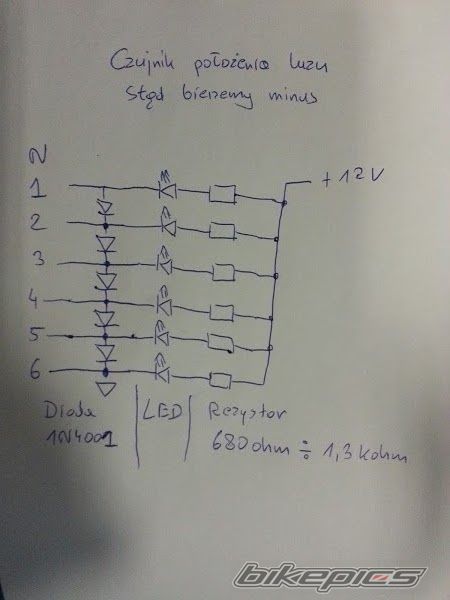 Czujnik położenia luzu
Stąd bierzemy minus
N
1
+12V
2
3
4
5
6
Dioda | LED | Rezystor
1N4001
680 ohm ÷ 1,3 kohm
bikepics